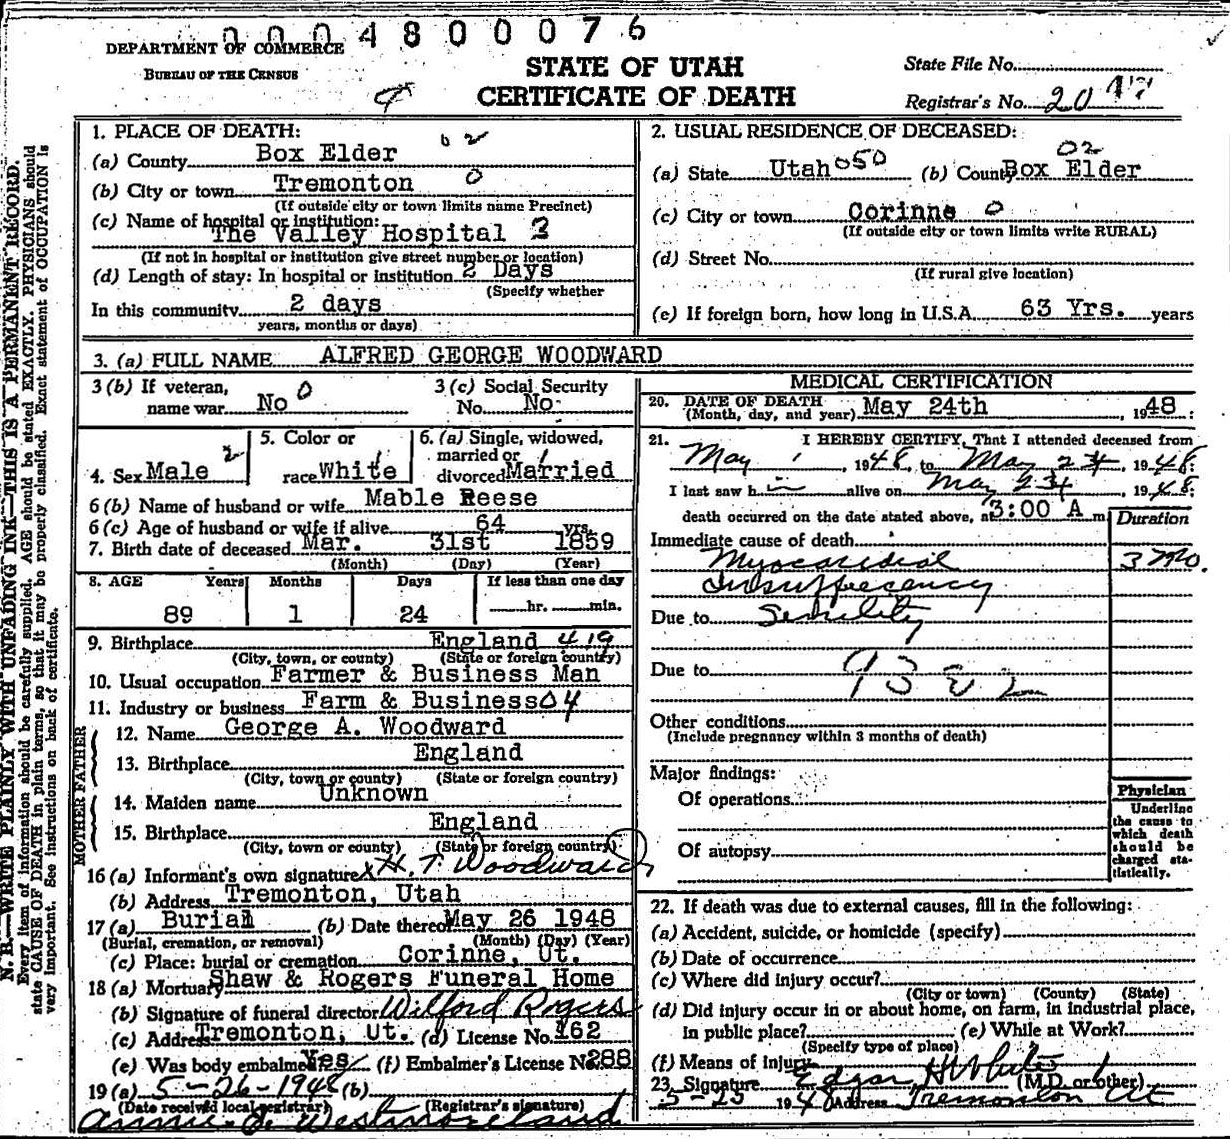 0004800076
DEPARTMENT OF COMMERCE
BUREAU OF THE CENSUS
STATE OF UTAH
CERTIFICATE OF DEATH
State File No.
Registrar's No. 20
1. PLACE OF DEATH: 02
(a) County Box Elder
(b) City or town Tremonton 0
(If outside city or town limits name Precinct)
(c) Name of hospital or institution:
The Valley Hospital 3
(If not in hospital or institution give street number or location)
(d) Length of stay: In hospital or institution 2 Days
(Specify whether
In this community 2 days
years, months or days)
2. USUAL RESIDENCE OF DECEASED:
02
(a) State Utah 050 (b) County Box Elder
(c) City or town Corinne 0
(If outside city or town limits write RURAL)
(d) Street No.
(If rural give location)
(e) If foreign born, how long in U.S.A. 63 Yrs. years
3. (a) FULL NAME ALFRED GEORGE WOODWARD
3 (b) If veteran,
name war No 0
3 (c) Social Security
No. No
4. Sex Male 2
5. Color or
race White 1
6. (a) Single, widowed,
married or 1
divorced Married
6 (b) Name of husband or wife Mable Reese
6 (c) Age of husband or wife if alive 64 yrs.
7. Birth date of deceased Mar. 31st 1859
(Month) (Day) (Year)
8. AGE Years Months Days If less than one day
89 1 24 hr. min.
9. Birthplace England 419
(City, town, or county) (State or foreign country)
10. Usual occupation Farmer & Business Man
11. Industry or business Farm & Business 04
FATHER
12. Name George A. Woodward
13. Birthplace England
(City, town or county) (State or foreign country)
MOTHER
14. Maiden name Unknown
15. Birthplace England
(City, town or county) (State or foreign country)
16 (a) Informant's own signature x H. T. Woodward
(b) Address Tremonton, Utah
17 (a) Burial (b) Date thereof May 26 1948
(Burial, cremation, or removal) (Month) (Day) (Year)
(c) Place: burial or cremation Corinne, Ut.
18 (a) Mortuary Shaw & Rogers Funeral Home
(b) Signature of funeral director Wilford Rogers
(c) Address Tremonton, Ut. (d) License No. 162
(e) Was body embalmed Yes (f) Embalmer's License No. 288
19 (a) 5-26-1948 (b)
(Date received local registrar) (Registrar's signature)
Annie J. Westmoreland
MEDICAL CERTIFICATION
20. DATE OF DEATH
(Month, day, and year) May 24th, 1948:
21. I HEREBY CERTIFY, That I attended deceased from
May 1, 1948, to May 24, 1948:
I last saw him alive on May 24, 1948;
death occurred on the date stated above, at 3:00 A m.
Duration
Immediate cause of death
Myocardial 3 mo.
Insufficiency
Due to Senility
Due to
Other conditions
(Include pregnancy within 3 months of death)
Major findings:
Of operations
Of autopsy
Physician
Underline
the cause to
which death
should be
charged sta-
tistically.
22. If death was due to external causes, fill in the following:
(a) Accident, suicide, or homicide (specify)
(b) Date of occurrence
(c) Where did injury occur?
(City or town) (County) (State)
(d) Did injury occur in or about home, on farm, in industrial place,
in public place? (e) While at Work?
(Specify type of place)
(f) Means of injury
23. Signature Edgar H White (M.D. or other)
5-25 1948 Address Tremonton Ut
N. B.—WRITE PLAINLY WITH UNFADING INK—THIS IS A PERMANENT RECORD.
Every item of information should be carefully supplied. AGE should be stated EXACTLY. PHYSICIANS should
state CAUSE OF DEATH in plain terms, so that it may be properly classified. Exact statement of OCCUPATION is
very important. See instructions on back of certificate.